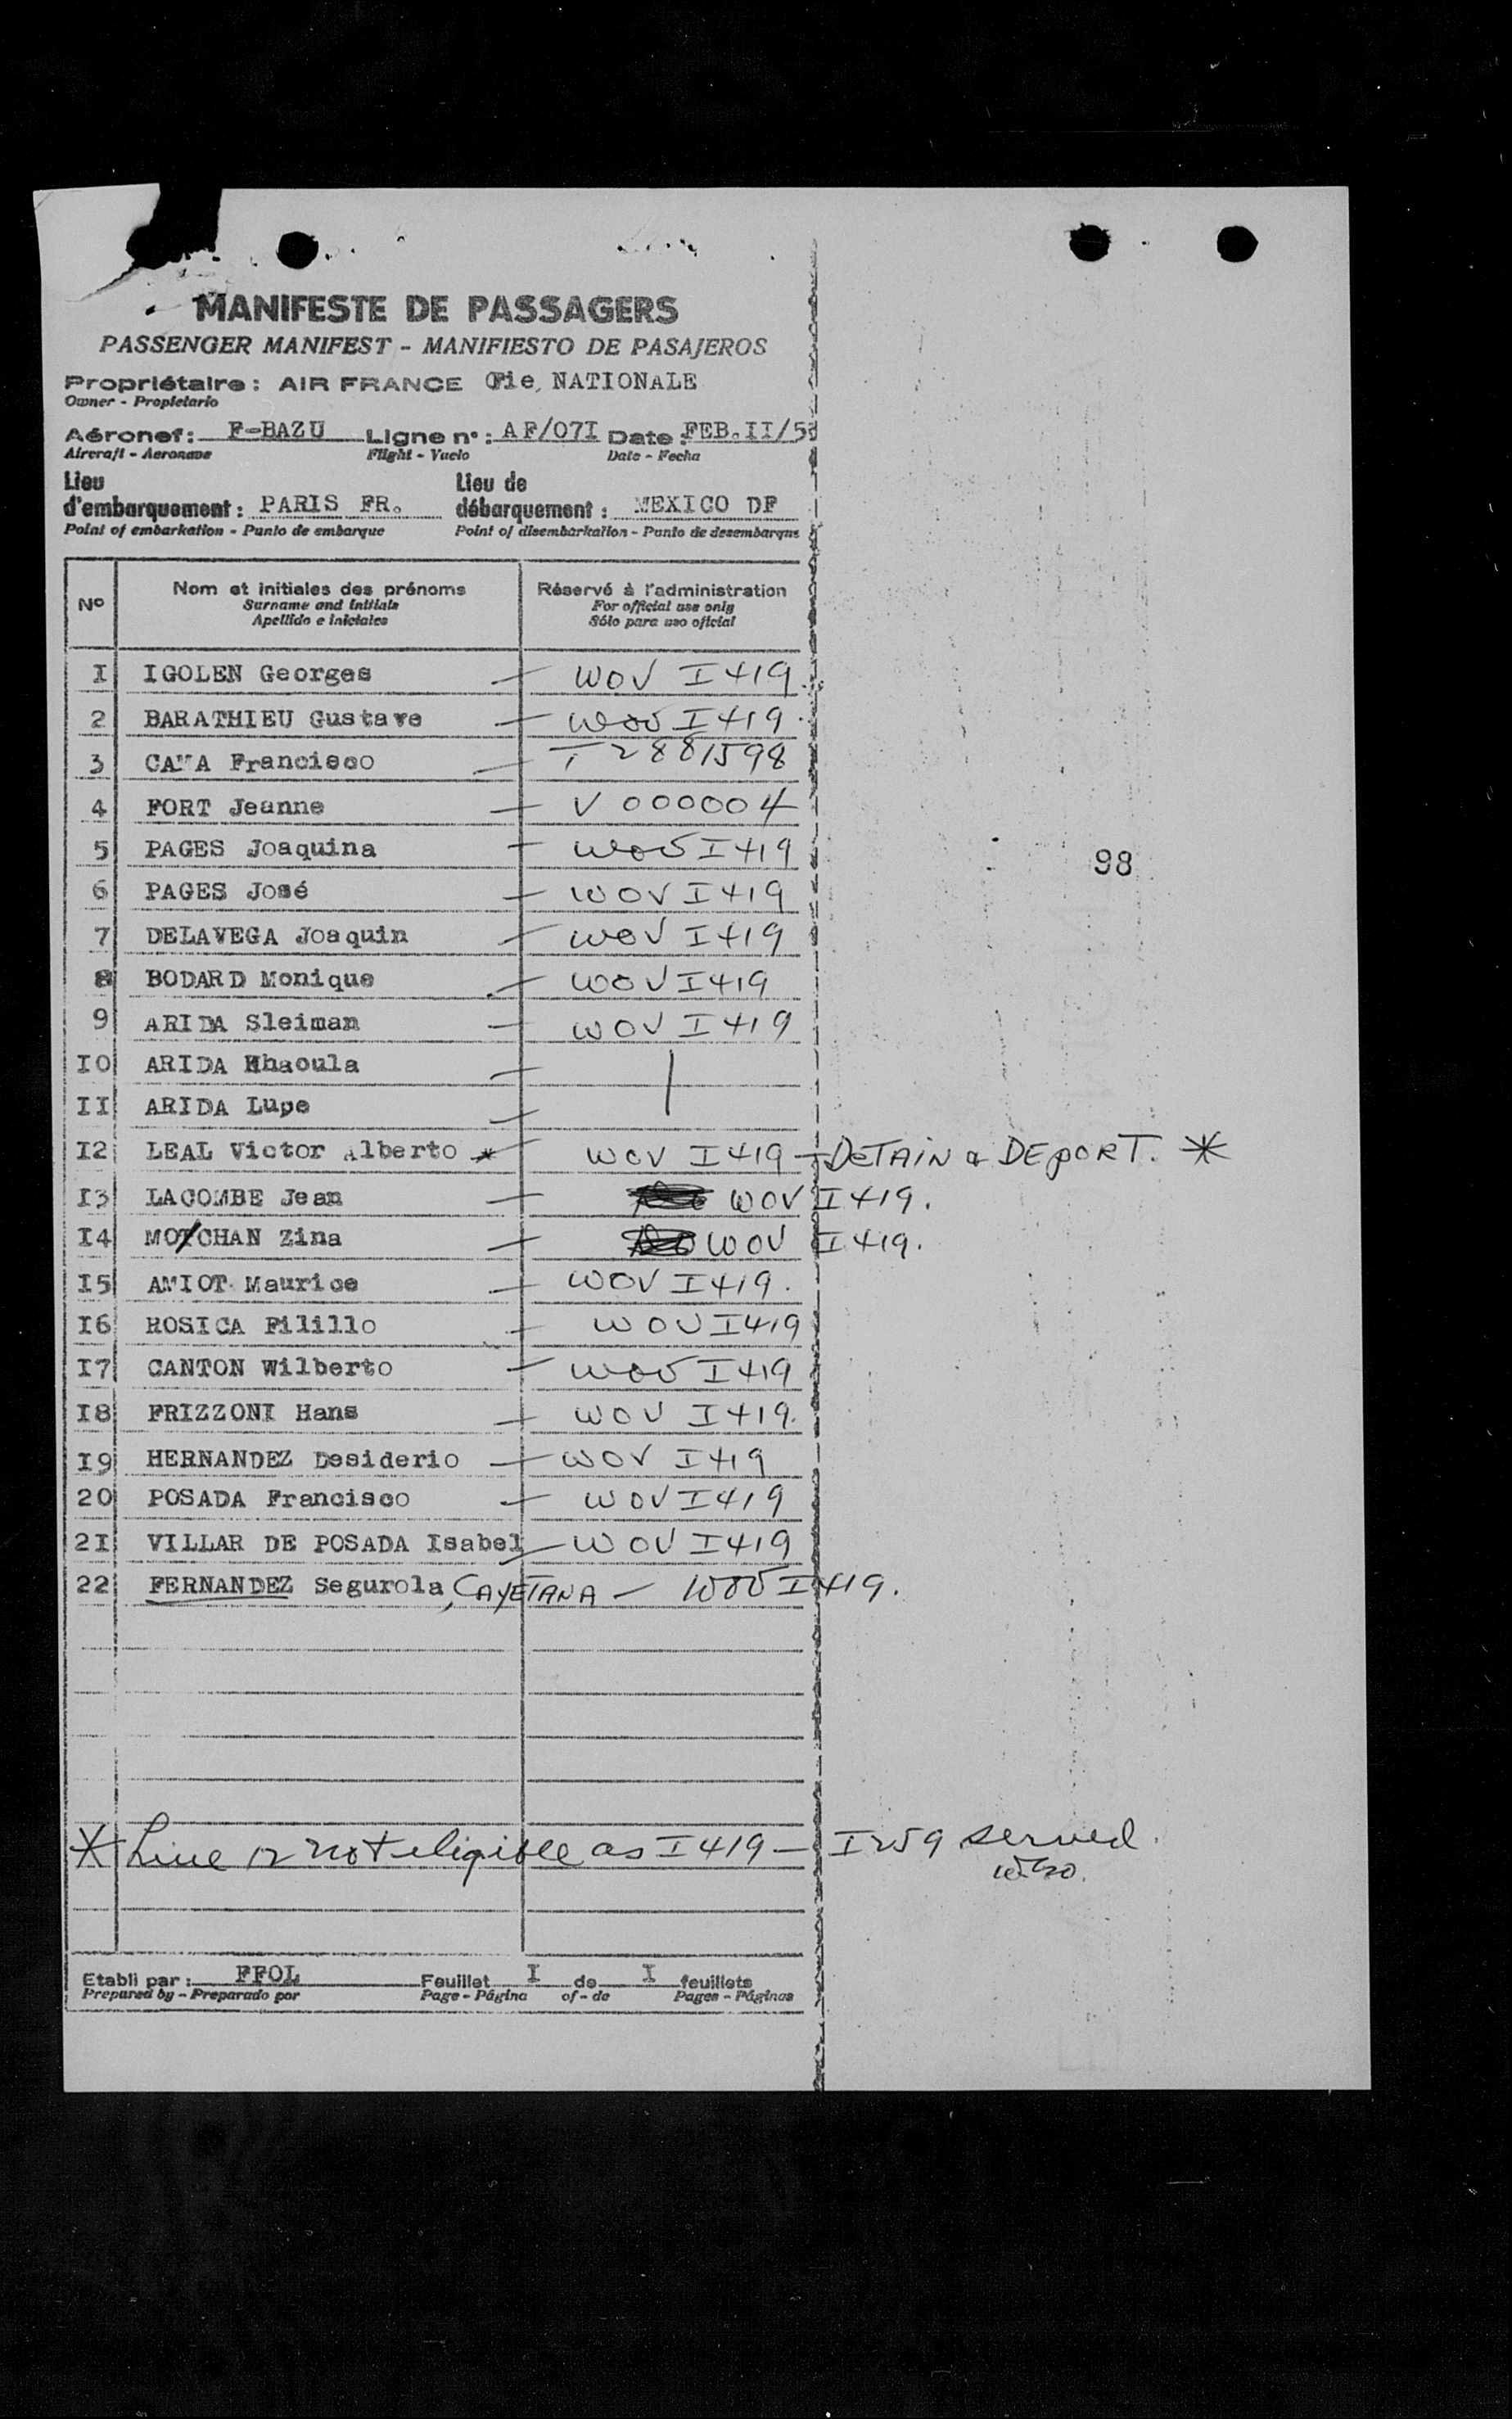 MANIFESTE DE PASSAGERS
PASSENGER MANIFEST - MANIFIESTO DE PASAJEROS
Propriétaire : AIR FRANCE Cie, NATIONALE
Owner - Propietario
Aéronef : F-BAZU Ligne n° : AF/07I Date : FEB.II/53
Aircraft - Aeronave Flight - Vuelo Date - Fecha
Lieu d'embarquement : PARIS FR. Lieu de débarquement : MEXICO DF
Point of embarkation - Punto de embarque Point of disembarkation - Punto de desembarque
N° Nom et initiales des prénoms Réservé à l'administration
Surname and Initials For official use only
Apellido e iniciales Sólo para uso oficial
I IGOLEN Georges — WOV I 419
2 BARATHIEU Gustave — WOV I 419
3 CAMA Francisco — T 2881598
4 FORT Jeanne — V 000004
5 PAGES Joaquina — WOV I 419
98
6 PAGES José — WOV I 419
7 DELAVEGA Joaquin — WOV I 419
8 BODARD Monique — WOV I 419
9 ARIDA Sleiman — WOV I 419
IO ARIDA Khaoula —
II ARIDA Lupe —
I2 LEAL Victor Alberto * — WOV I 419 — DETAIN & DEPORT. *
I3 LACOMBE Jean — WOV I 419.
I4 MOTCHAN Zina — WOV I 419.
I5 AMIOT Maurice — WOV I 419.
I6 ROSICA Filillo — WOV I 419
I7 CANTON Wilberto — WOV I 419
I8 FRIZZONI Hans — WOV I 419.
I9 HERNANDEZ Desiderio — WOV I 419
20 POSADA Francisco — WOV I 419
2I VILLAR DE POSADA Isabel — WOV I 419
22 FERNANDEZ Segurola, CAYETANA — WOV I 419.
* Line 12 not eligible as I 419 — I 259 served.
Etabli par : FFOL Feuillet I de I feuillets
Prepared by - Preparado por Page - Página of - de Pages - Páginas